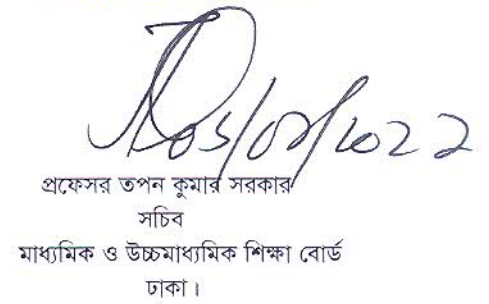 প্রফেসর তপন কুমার সরকার
সচিব
মাধ্যমিক ও উচ্চমাধ্যমিক শিক্ষা বোর্ড
ঢাকা।